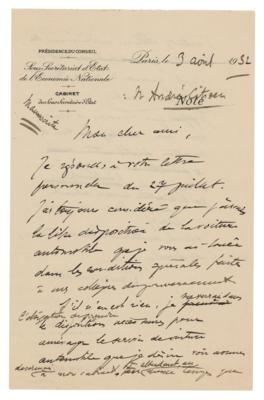 PRÉSIDENCE DU CONSEIL
Sous-Secrétariat d'État
de l'Économie Nationale
CABINET
du Sous-Secrétaire d'État
Paris, le 3 août 1932
M. André Citroën
Note
Mon cher ami,
Je réponds à votre lettre
personnelle du 27 juillet.
J'ai toujours considéré que j'avais
la libre disposition de la voiture
automobile que je vous ai louée
dans les conditions spéciales faites
à mes collègues du gouvernement
S'il n'en est rien, je
l'obligation de prendre
les dispositions nécessaires pour
le service de voiture
automobile que je désire voir assurer
à mon cabinet, temps que